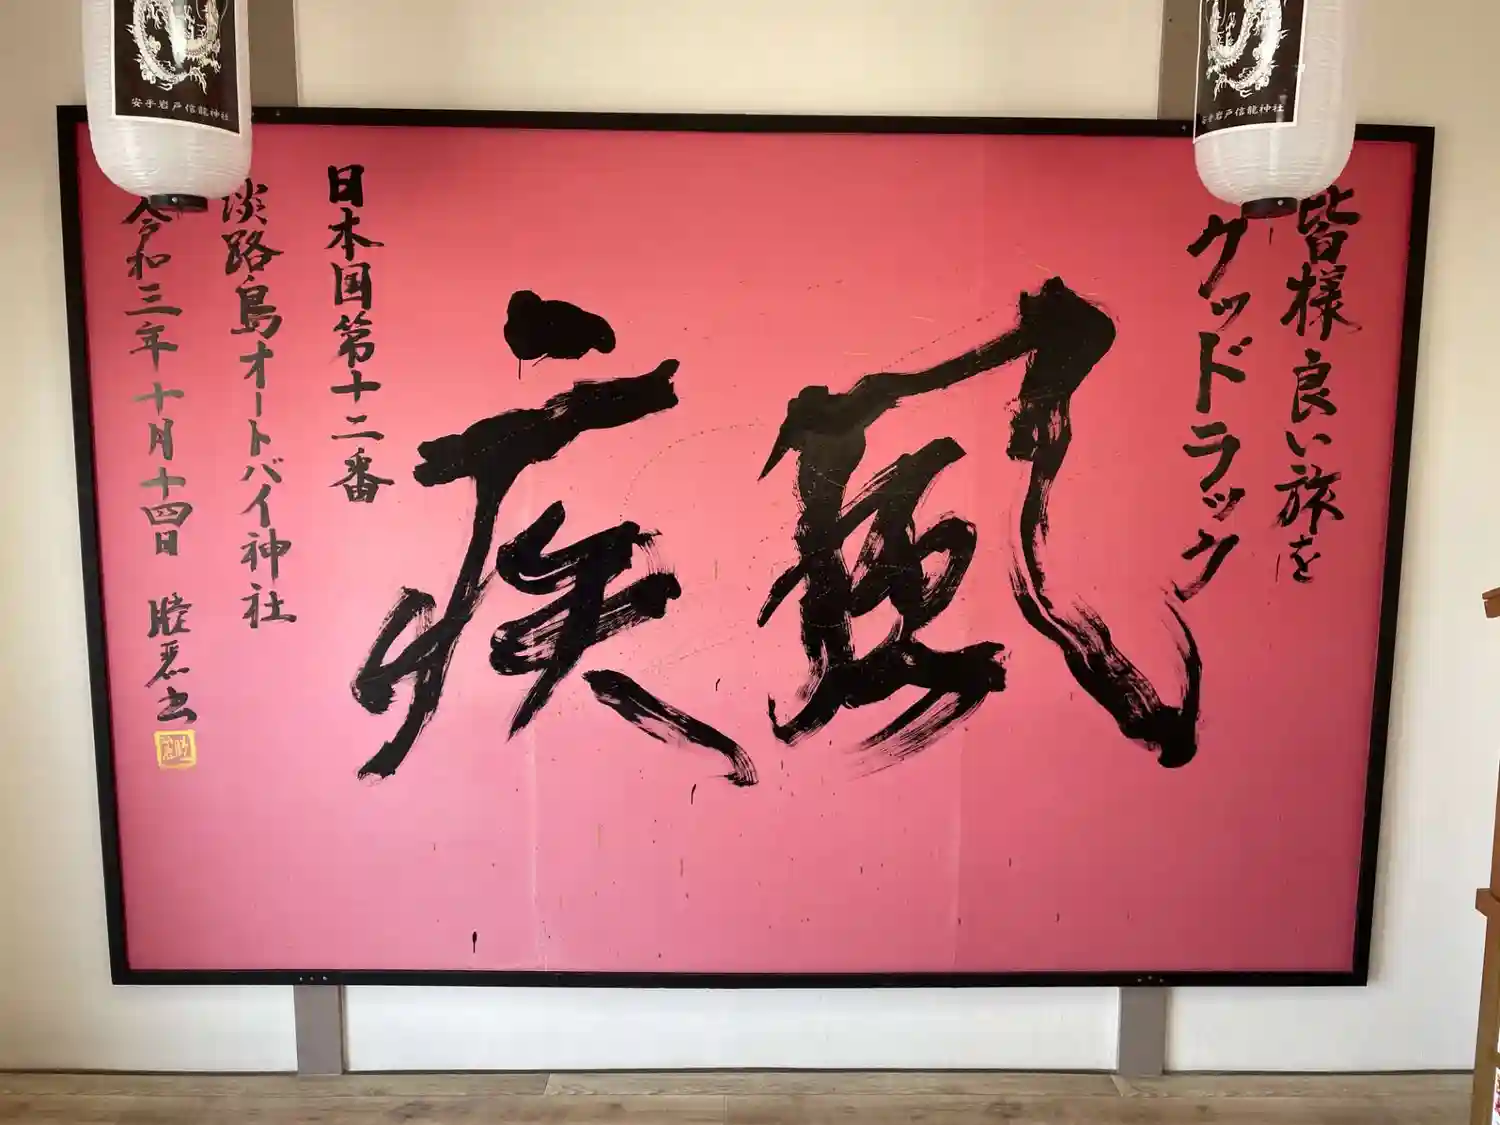 皆様良い旅を
グッドラック
風
疾
日本国第十二番
淡路島オートバイ神社
令和三年十月十四日
書
安乎岩戸信龍神社
安乎岩戸信龍神社